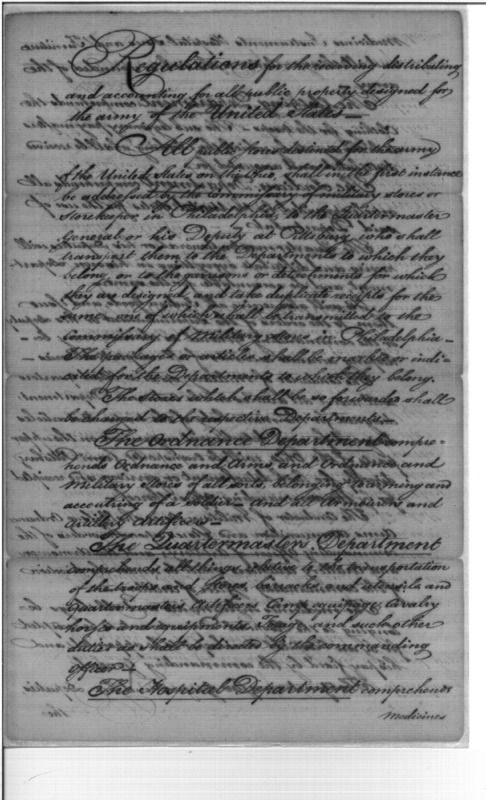 Regulations for the receiving distributing
and accounting for all public property designed for
the army of the United States—
All public stores destined for the army
of the United States on the Ohio, shall in the first instance
be addressed by the commissary of military stores or
Storekeeper, in Philadelphia, to the Quartermaster
General or his Deputy at Pittsburg, who shall
transport them to the Departments to which they
belong, or to the garrisons or detachments for which
they are designed, and take duplicate receipts for the
same—one of which shall be transmitted to the
Commissary of Military stores in Philadelphia—
The packages or articles shall be marked or indi-
cated for the Departments to which they belong.
The Stores which shall be so forwarded shall
be charged to the respective Departments—
The Ordnance Department compre-
hends Ordnance and Arms, and Ordnance and
Military stores of all sorts, belonging to arming and
accoutring of a soldier—and all Armourers and
Artillery Artificers—
The Quartermasters Department
comprehends all things relative to the transportation
of the troops and stores, barracks and utensils and
Quartermasters Artificers Camp equipage, Cavalry
horses and equipments, Forage and such other
duties as shall be directed by the commanding
officer—
The Hospital Department comprehends
Medicines